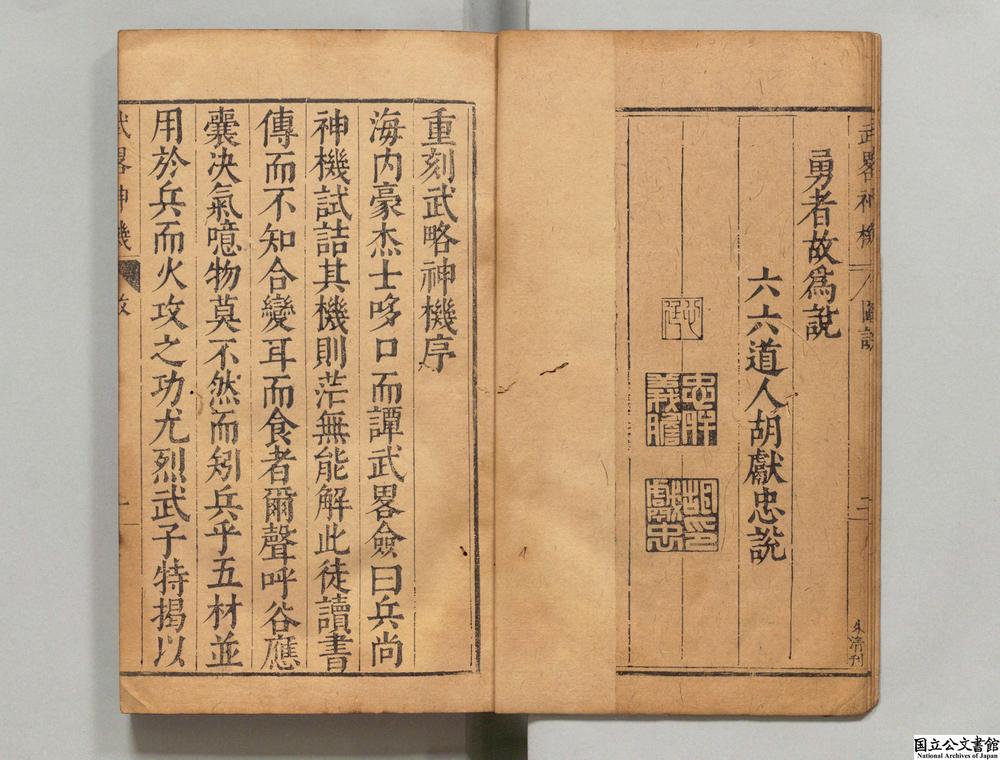 武畧神機
圖說
二
朱清刊
勇者故爲說
六六道人胡獻忠說
忠肝義膽
胡印獻忠
重刻武略神機序
海內豪杰士哆口而譚武畧僉曰兵尚
神機試詰其機則茫無能解此徒讀書
傳而不知合變耳而食者爾聲呼谷應
囊决氣噫物莫不然而矧兵乎五材並
用於兵而火攻之功尤烈武子特揭以
武畧神機
一
国立公文書館
National Archives of Japan